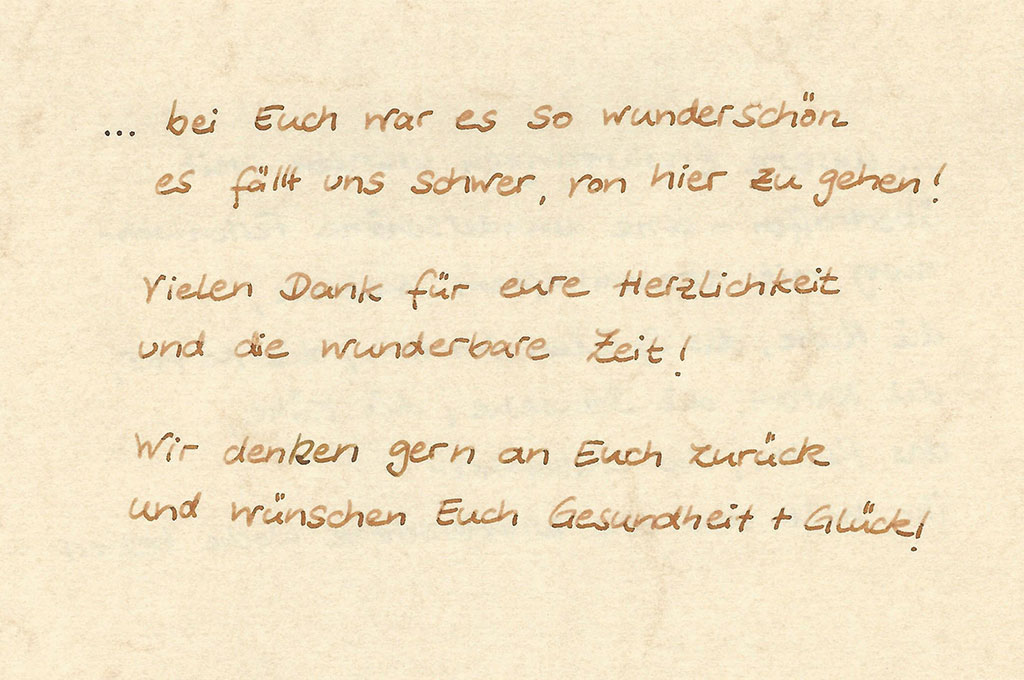 ... bei Euch war es so wunderschön
es fällt uns schwer, von hier zu gehen!
Vielen Dank für eure Herzlichkeit
und die wunderbare Zeit!
Wir denken gern an Euch zurück
und wünschen Euch Gesundheit + Glück!